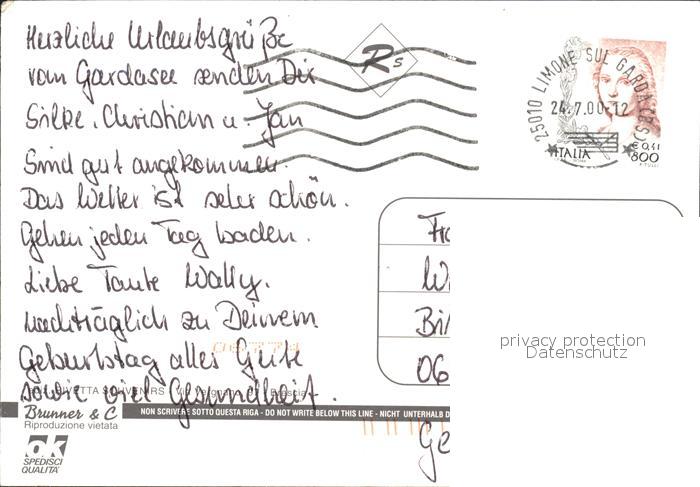 Herzliche Urlaubsgrüße
vom Gardasee senden Dir
Silke, Christian u. Jan
Sind gut angekommen.
Das Wetter ist sehr schön.
Gehen jeden Tag baden.
Liebe Tante Wally,
nachträglich zu Deinem
Geburtstag alles Gute
sowie viel Gesundheit.
Rs
25010 LIMONE SUL GARDA (BS)
24.7.00-12
ITALIA
€ 0,41
800
Fr
W
Bi
06
Ge
privacy protection
Datenschutz
SOUVENIRS
Brescia
Brunner & C
Riproduzione vietata
NON SCRIVERE SOTTO QUESTA RIGA - DO NOT WRITE BELOW THIS LINE - NICHT UNTERHALB D
ok
SPEDISCI
QUALITÀ